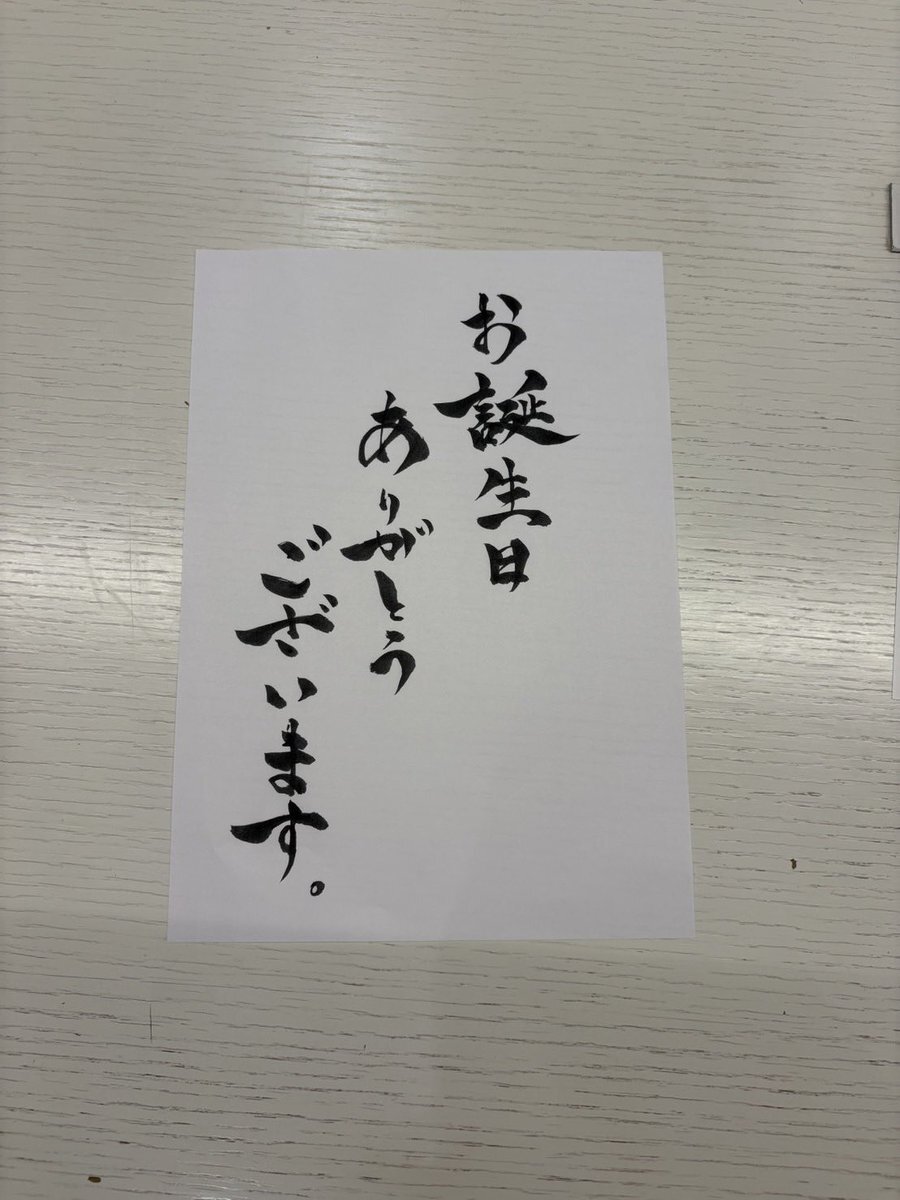 お誕生日
ありがとう
ございます。